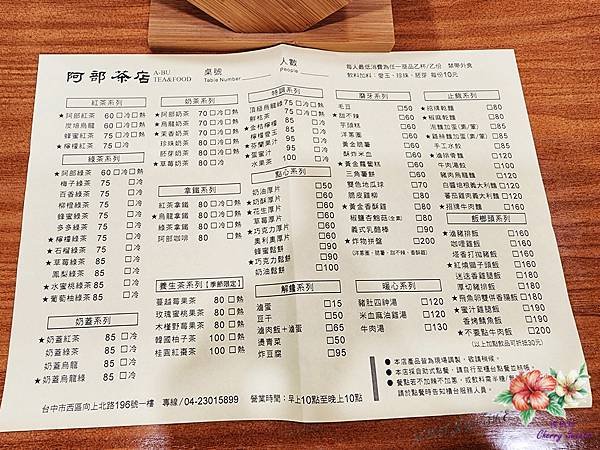 阿部茶店
A-BU
TEA&FOOD
桌號
Table Number
人數
People
每人最低消費為任一商品乙杯/乙份 禁帶外食
飲料加料：愛玉、珍珠、胚芽 每份10元
紅茶系列
★阿部紅茶 60□冷□熱
炭焙烏龍 60□冷□熱
蜂蜜紅茶 75□冷□熱
★檸檬紅茶 75□冷
綠茶系列
★阿部綠茶 60□冷□熱
梅子綠茶 75□冷
百香綠茶 75□冷
柳橙綠茶 75□冷
蜂蜜綠茶 75□冷
多多綠茶 75□冷
★檸檬綠茶 75□冷
★石榴綠茶 75□冷
★草莓綠茶 85□冷
鳳梨綠茶 85□冷
★水蜜桃綠茶 85□冷
★葡萄柚綠茶 85□冷
奶蓋系列
★奶蓋紅茶 85□冷
奶蓋綠茶 85□冷
奶蓋烏龍 85□冷
★奶蓋烏龍綠 85□冷
奶茶系列
★阿部奶茶 70□冷□熱
★烏龍奶茶 70□冷□熱
★茉香奶茶 70□冷□熱
珍珠奶茶 80□冷□熱
胚芽奶茶 80□冷□熱
★草莓奶茶 80□冷
拿鐵系列
紅茶拿鐵 80□冷□熱
★烏龍拿鐵 80□冷□熱
綠茶拿鐵 80□冷□熱
阿部咖啡 80□冷□熱
養生茶系列【季節限定】
蔓越莓果茶 80□熱
玫瑰蜜桃果茶 80□熱
木槿野莓果茶 80□熱
韓國柚子茶 100□熱
桂圓紅棗茶 100□熱
特調系列
頂極烏龍綠 75□冷□熱
鮮桔茶 75□冷□熱
★金桔檸檬 85□冷□熱
檸檬愛玉 85□冷
★芬蘭果汁 90□冷
★蛋蜜汁 90□冷
水果茶 100□冷□熱
點心系列
奶油厚片 □50
★奶酥厚片 □60
★花生厚片 □60
草莓厚片 □60
★巧克力厚片 □60
奧利奧厚片 □60
蜂蜜鬆餅 □90
★巧克力鬆餅 □90
奶油鬆餅 □90
解饞系列
滷蛋 □15
豆干 □50
滷肉飯+滷蛋 □65
燙青菜 □50
炸豆腐 □95
磨牙系列
毛豆 □50
★甜不辣 □60
芋頭糕 □60
洋蔥圈 □60
黃金脆薯 □60
酥炸米血 □60
★黃金蘿蔔糕 □60
三角薯餅 □60
雙色地瓜球 □70
脆皮雞柳 □80
★黃金香酥雞 □80
椒鹽杏鮑菇(全素) □80
義式乳酪棒 □90
★炸物拼盤 □200
(洋蔥圈、脆薯、甜不辣、香酥雞)
暖心系列
豬肚四神湯 □120
米血麻油雞湯 □120
牛肉湯 □130
止飢系列
★招撲乾麵 □80
★椒麻乾麵 □80
泡麵加蛋(素/葷) □80
★鍋絲麵加蛋(素/葷) □85
手工水餃 □85
★滷排骨麵 □120
牛肉湯餃 □100
豬肉烏龍麵 □120
白醬培根義大利麵 □120
番茄雞肉義大利麵 □120
★招牌牛肉麵 □160
飯鄉頭系列
★滷豬排飯 □160
咖哩雞飯 □160
塔香打拋豬飯 □160
★紅燒獅子頭飯 □160
迷迭香雞腿飯 □160
厚切豬排飯 □180
★飛魚卵雙併香腸飯 □180
★蜜汁雞腿飯 □180
香烤鯖魚飯 □190
★不要點牛肉飯 □200
(以上加點飲品可折抵30元)
●本店產品皆為現場調製，敬請稍候。
●本店採自助式點餐，請自行至櫃台點餐並結帳。
請於點餐時告知櫃台服務人員。
台中市西區向上北路196號一樓 專線/04-23015899 營業時間：早上10點至晚上10點